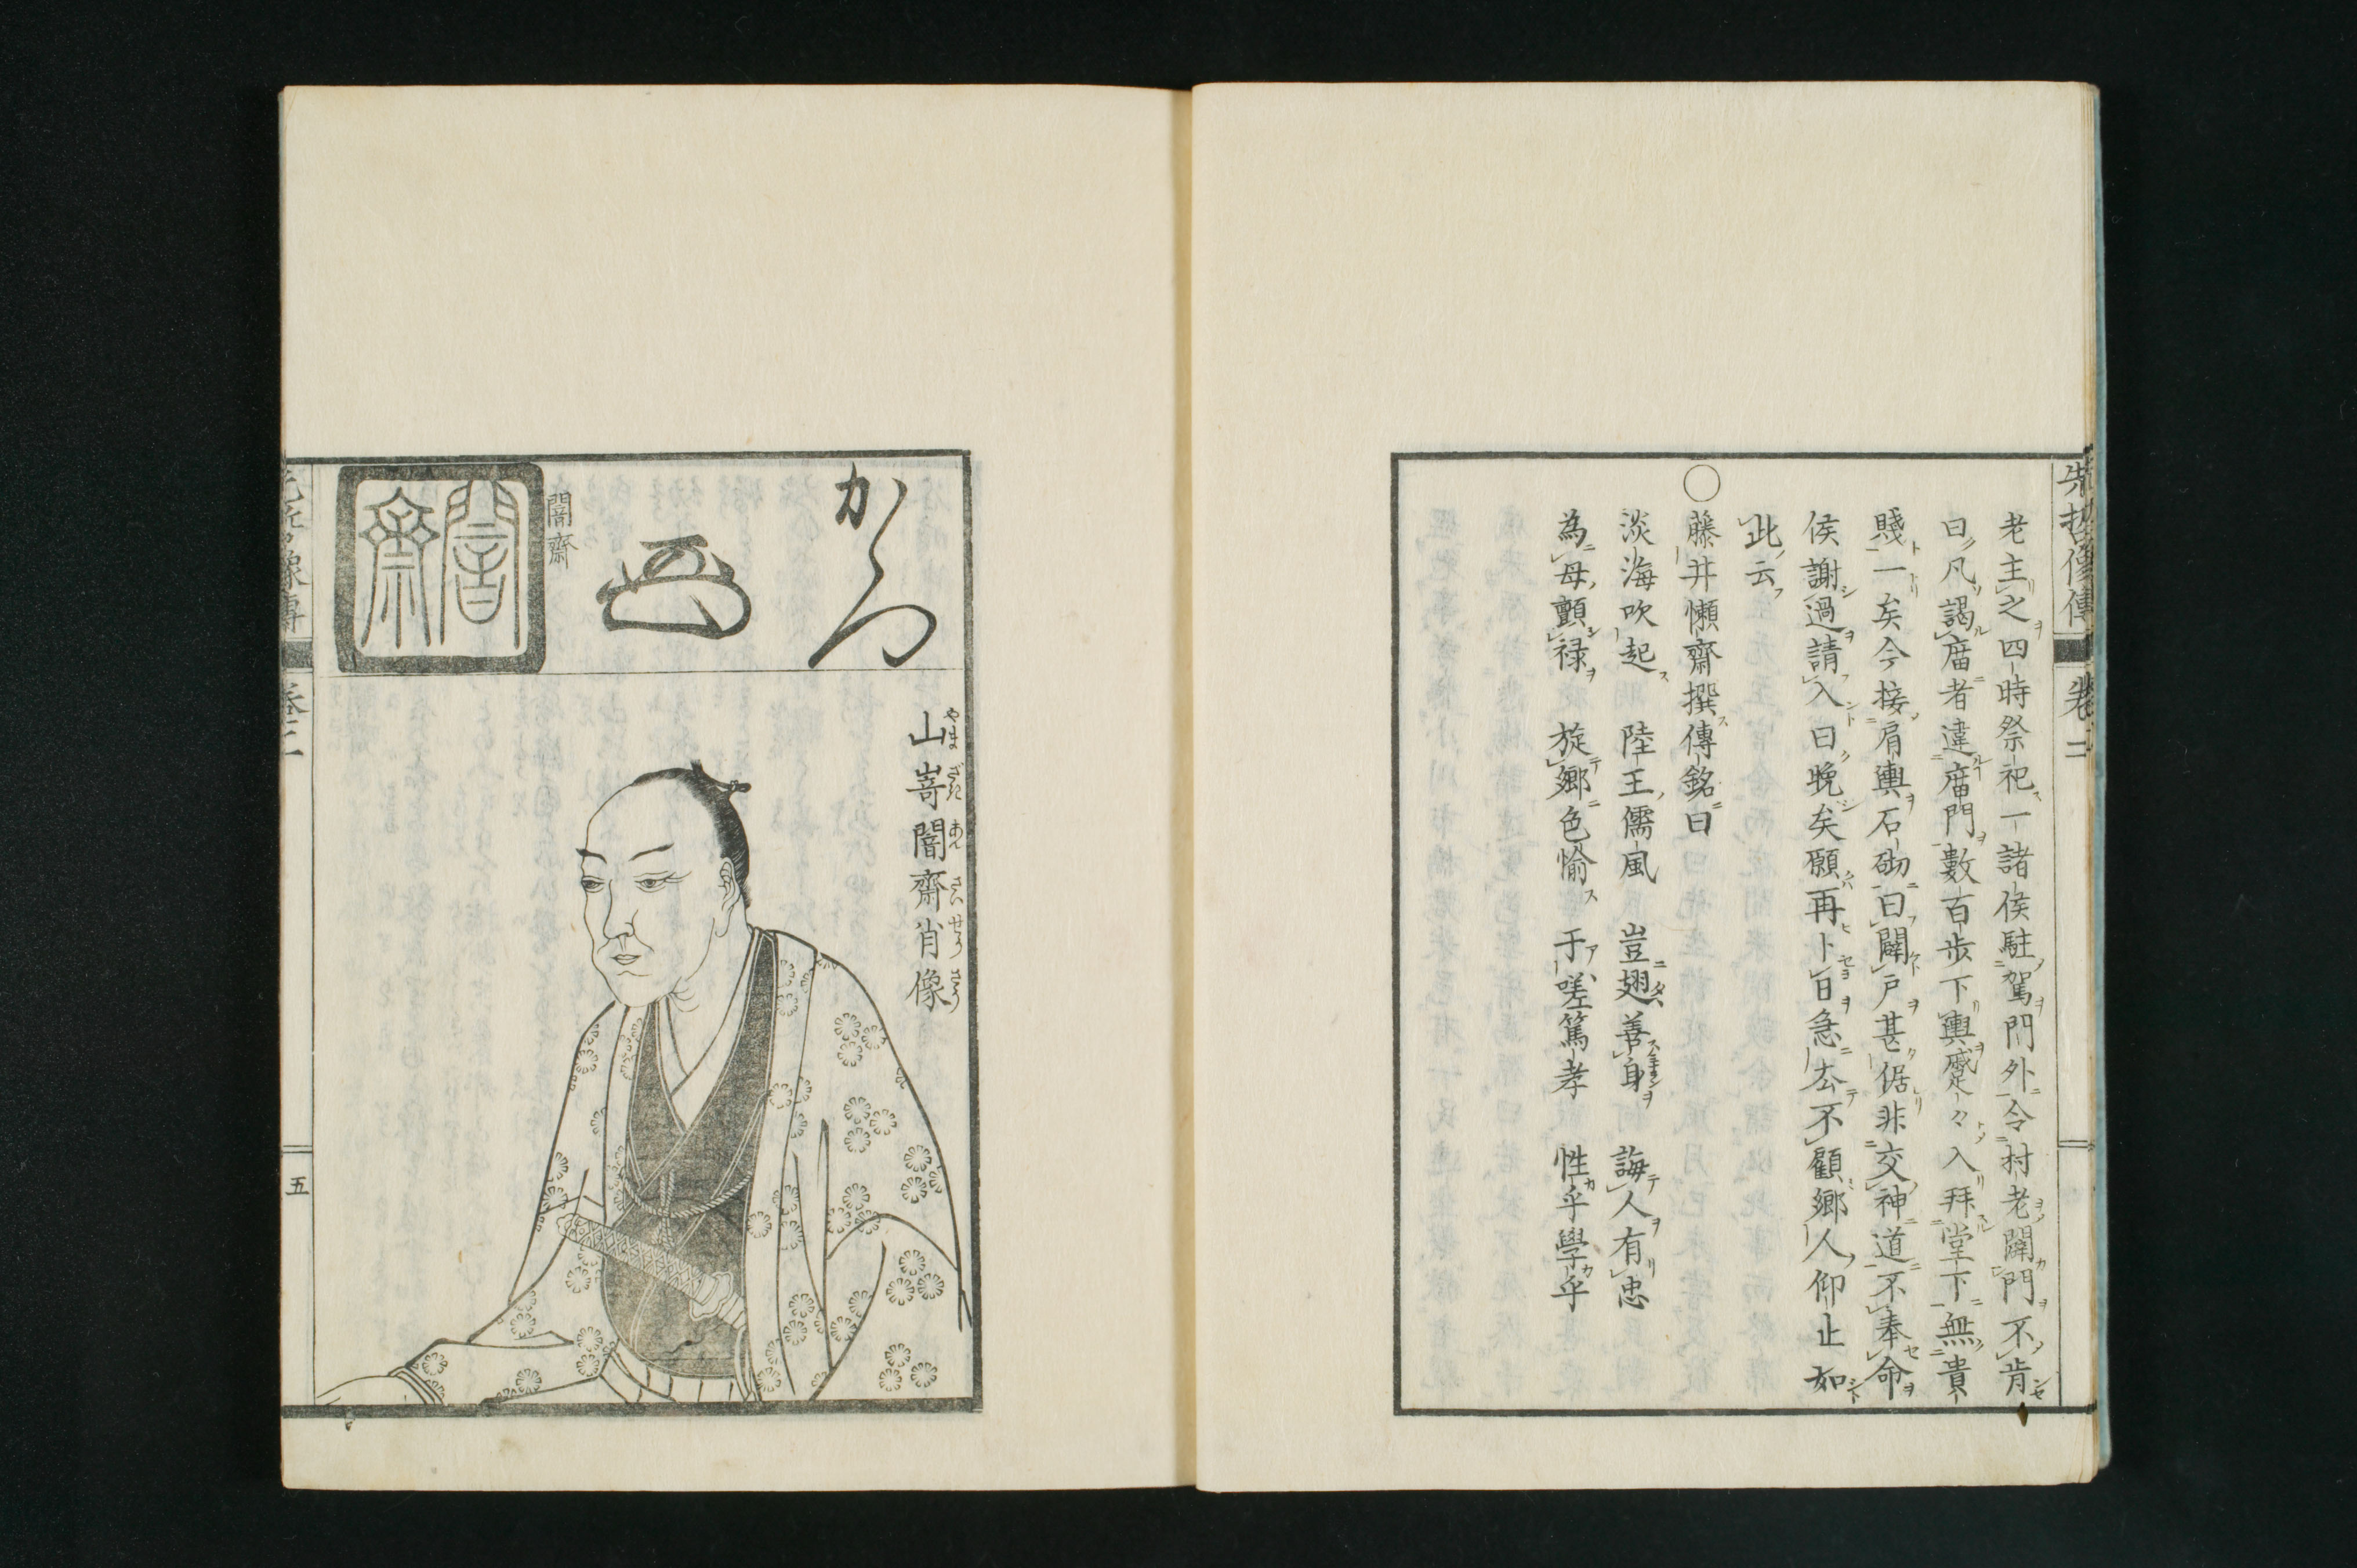 先哲像傳 卷二
老主之四時祭祀一諸侯駐駕門外令村老闢門不肯
曰凡謁庿者違庿門數百歩下輿蹙々入拜堂下無貴
賤一矣今接肩輿石砌曰闢戸甚倨非交神道不奉命
侯謝過請入曰晩矣願再卜日急去不顧郷人仰止如
此云
○藤井懶齋撰傳銘曰
淡海吹起 陸王儒風 豈翅善身 誨人有忠
為母顫禄 旋郷色愉 于嗟篤孝 性乎學乎
山嵜闇齋肖像
やまざきあんさいせうざう
闇齋
闇齋
先哲像傳 卷二
五